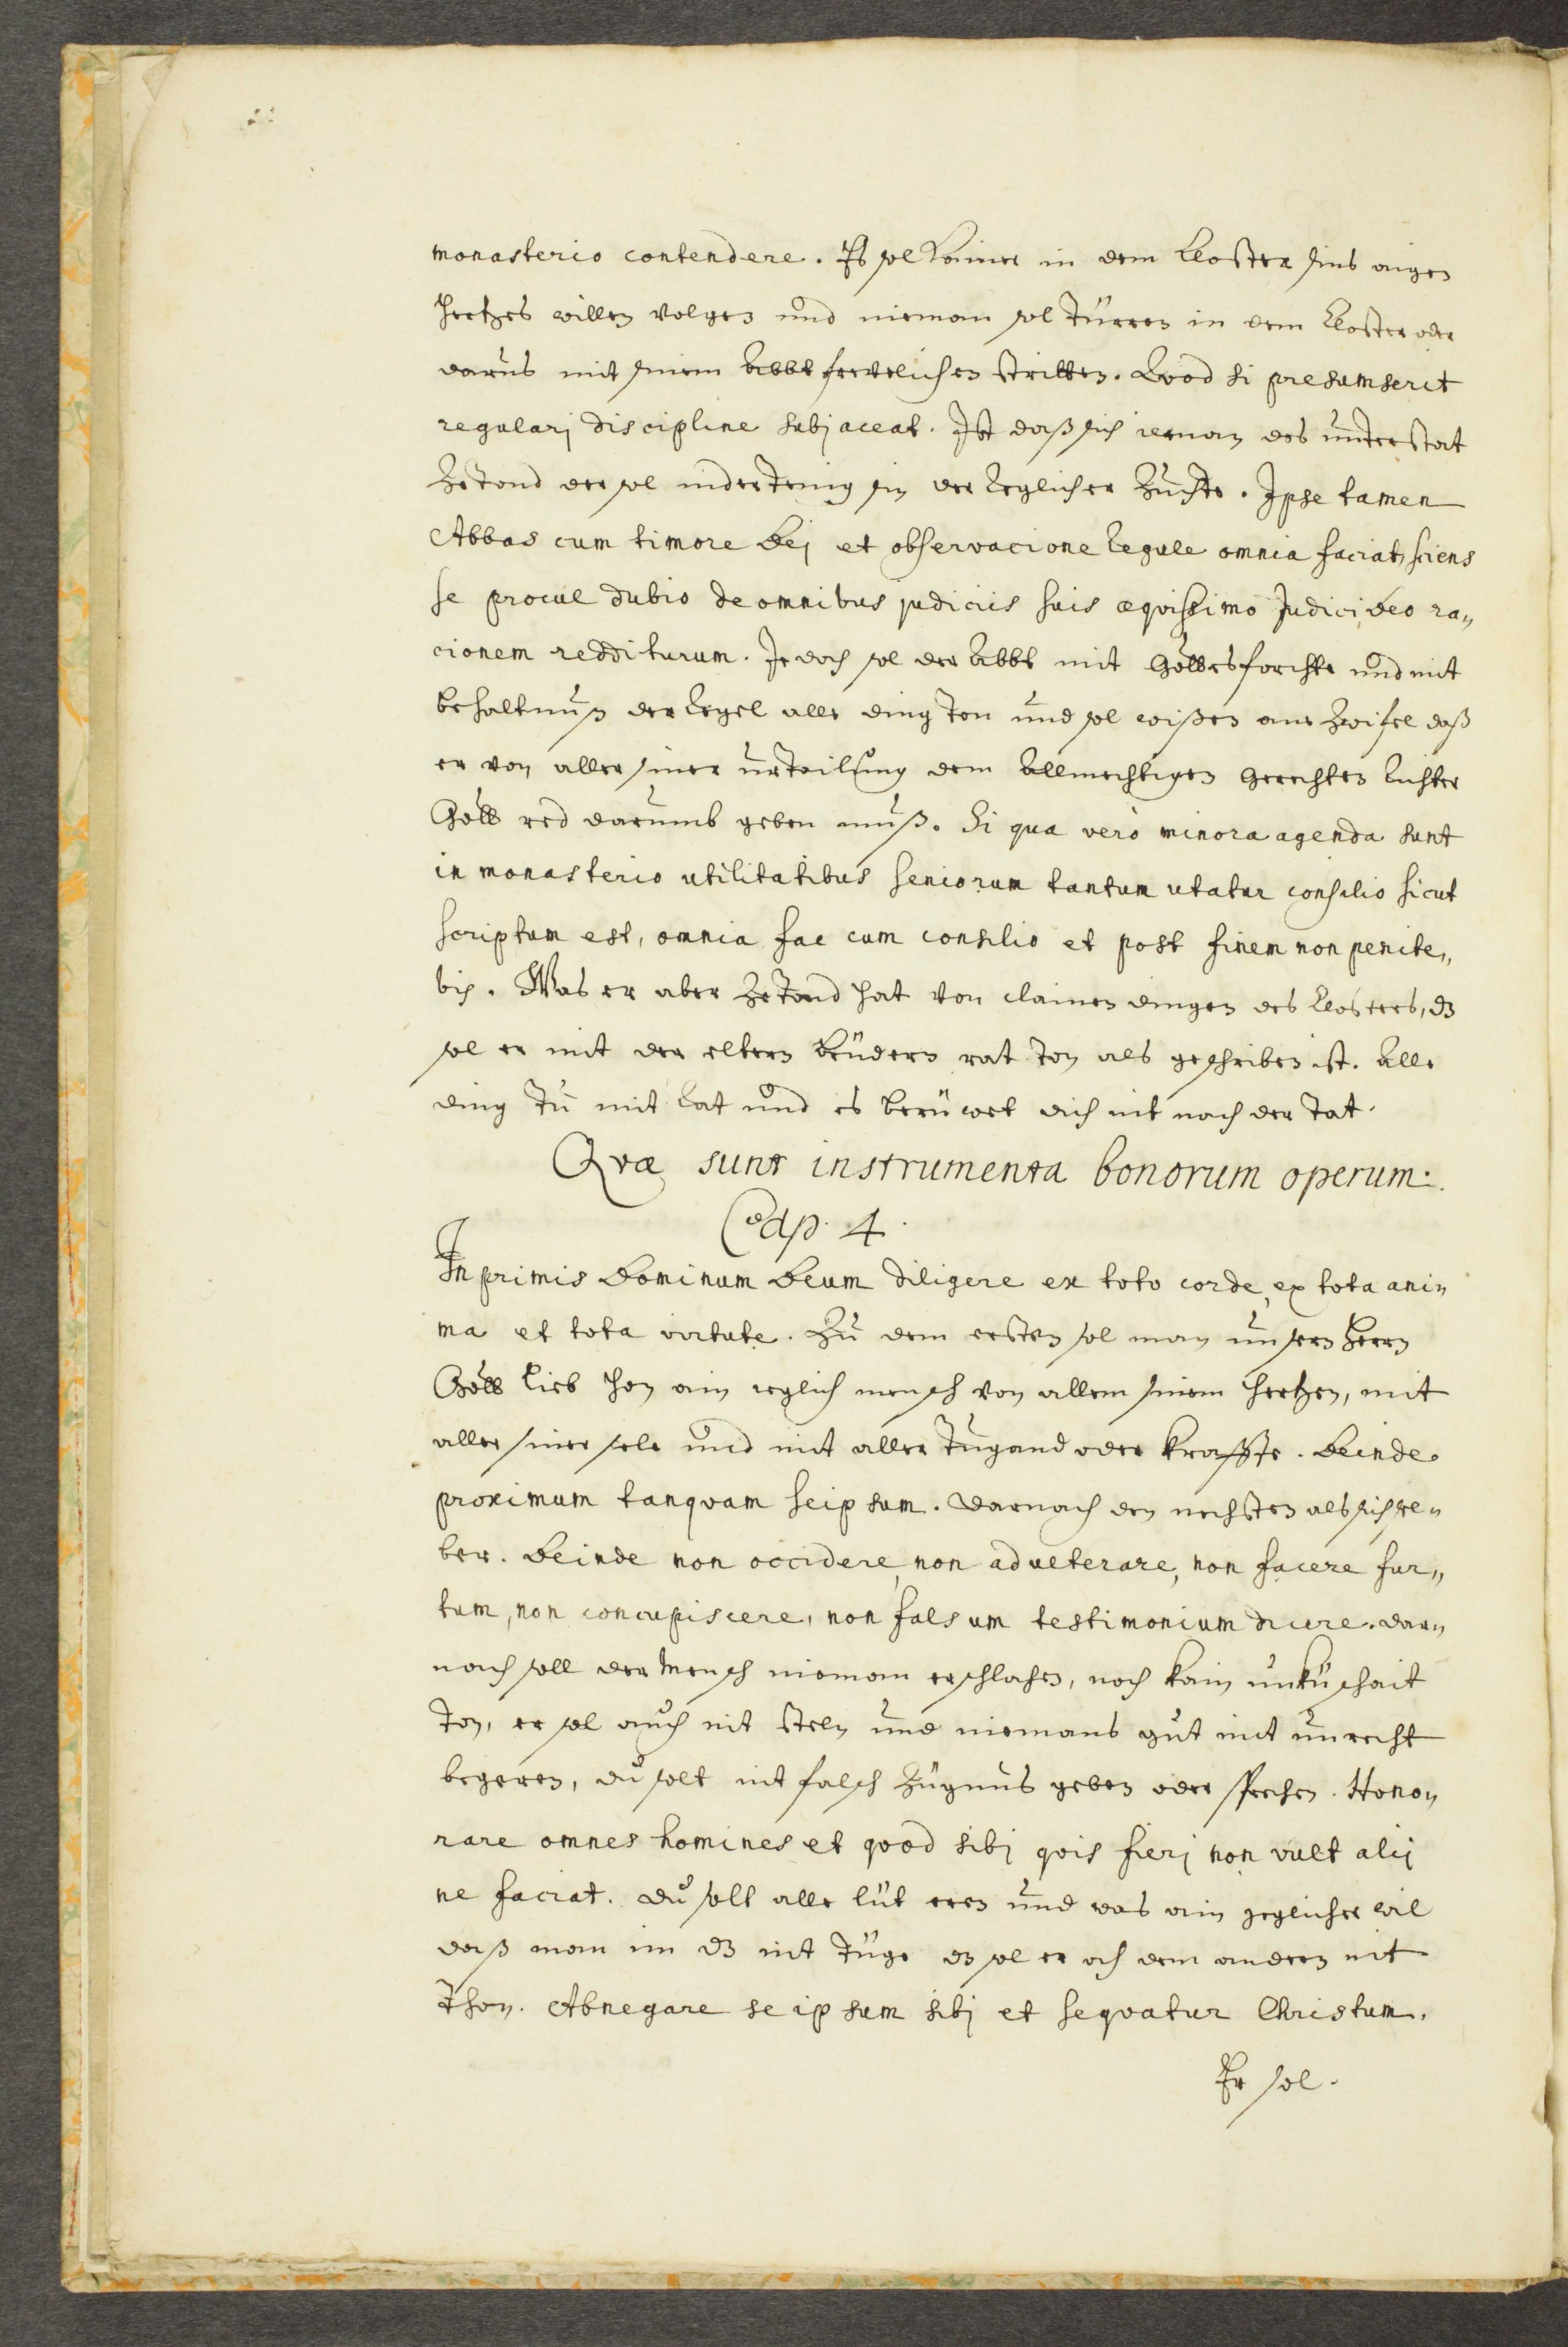 monasterio contendere. Es sol kainer in dem Closter sins aigen
hertzes willen volgen und nieman sol türren in dem Closter oder
darus mit sinem Abbt frevelichen stritten. Qvod si presumserit
regularj discipline subjaceat. Ist daß sich ieman des understat
ze tond der sol undertenig sin der Reglicher Zuchte. Ipse tamen
Abbas cum timore Dej et observacione Regule omnia faciat, sciens
se procul dubio de omnibus judiciis suis æqvissimo Judici Deo ra„
cionem redditurum. Je doch sol der Abbt mit Gottesforchte und mit
behaltnuß der Regel alle ding ton und sol wißen ane Zwifel daß
er von aller siner urteilung dem Allmechtigen Gerechten Richter
Gott red darumb geben muß. Si qua verò minora agenda sunt
in monasterio utilitatibus seniorum tantum utatur consilio sicut
scriptum est, omnia fac cum consilio et post finem non penite„
bis. Was er aber ze tond hat von clainen dingen des Closters, dz
sol er mit der eltern brüdern rat ton als geschriben ist. Alle
ding tu mit Rat und es berüwet dich nit nach der tat.
Qvæ sunt instrumenta bonorum operum.
Cap. 4.
In primis Dominum Deum diligere ex toto corde, ex tota ani„
ma et tota virtute. Zu dem ersten sol man unsern Herrn
Gott lieb han ain ieglich mensch von allem sinem hertzen, mit
aller siner sele und mit aller tugand oder kraffte. Deinde
proximum tanqvam seipsum. Darnach den nechsten als sich sel„
ber. Deinde non occidere, non adulterare, non facere fur„
tum, non concupiscere, non falsum testimonium dicere. Dar„
nach soll der mensch nieman erschlahen, noch kain unküschait
ton, er sol auch nit steln und niemans gut mit unrecht
begeren, du solt nit falsch Zügnus geben oder sprechen. Hono„
rare omnes homines et qvod sibj qvis fierj non vult alij
ne faciat. Du solt alle lüt eren und was ain ieglicher wil
daß man im dz nit tüge dz sol er och dem andern nit
thon. Abnegare se ipsum sibj et seqvatur Christum.
Er sol.